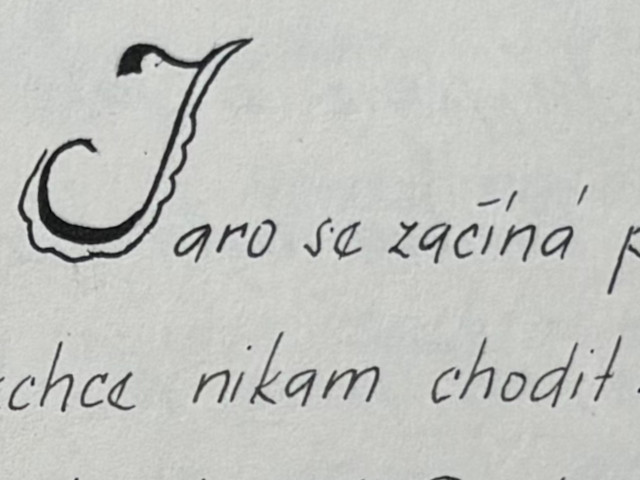 Jaro se začíná
chce nikam chodit